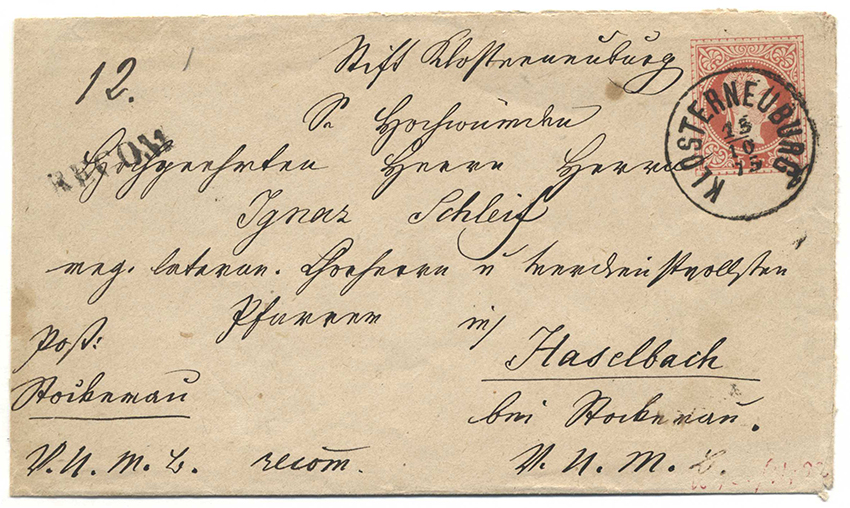 12.
Stift Klosterneuburg
RECOM
KLOSTERNEUBURG
13
10
75
Sr Hochwürden
Hochgeehrten Herrn Herrn
Ignaz Schleif
reg. lateran. Chorherrn u verdienstvollsten
Pfarrer in
Haselbach
bei Stockerau.
V. U. M. B.
Post:
Stockerau
V. U. M. B. recom.